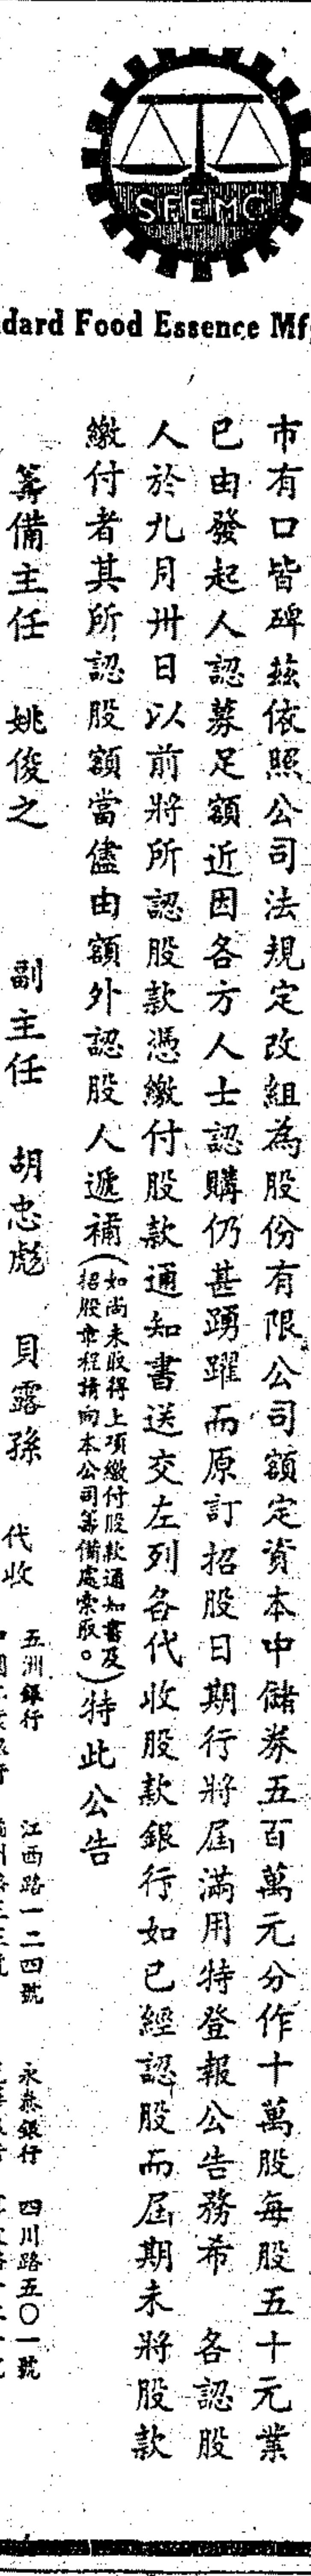 SFEMC
dard Food Essence Mf
市有口皆碑茲依照公司法規定改組為股份有限公司額定資本中儲券五百萬元分作十萬股每股五十元業
已由發起人認募足額近因各方人士認購仍甚踴躍而原訂招股日期行將屆滿用特登報公告務希 各認股
人於九月卅日以前將所認股款憑繳付股款通知書送交左列各代收股款銀行如已經認股而屆期未將股款
繳付者其所認股額當儘由額外認股人遞補(如尚未收得上項繳付股款通知書及招股章程請向本公司籌備處索取。)特此公告
籌備主任 姚俊之 副主任 胡忠彪 貝露孫 代收
五洲銀行 江西路一二四號 永燕銀行 四川路五〇一號